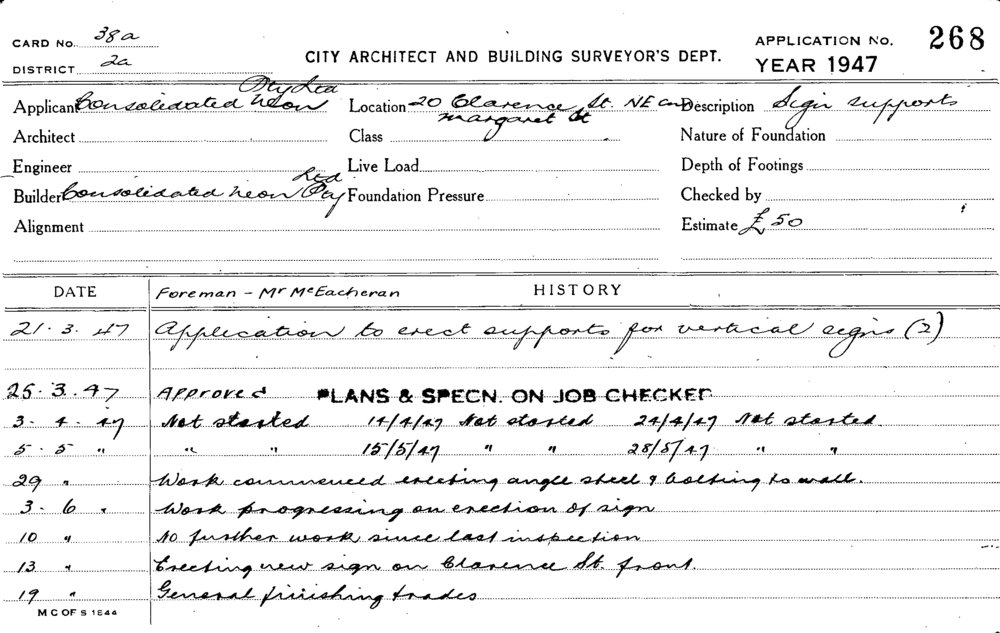 CARD No. 38a
DISTRICT 2a
CITY ARCHITECT AND BUILDING SURVEYOR'S DEPT.
APPLICATION No. 268
YEAR 1947
Applicant Consolidated Neon Pty Ltd
Location 20 Clarence St. NE Cnr Margaret St
Description Sign supports
Architect
Class
Nature of Foundation
Engineer
Live Load
Depth of Footings
Builder Consolidated Neon Pty Ltd
Foundation Pressure
Checked by
Alignment
Estimate £50
DATE Foreman - Mr McEacheran HISTORY
21.3.47 Application to erect supports for vertical signs (2)
25.3.47 Approved PLANS & SPECN. ON JOB CHECKED
3. 4. 47 Not started 14/4/47 Not started 24/4/47 Not started
5. 5 " " " 15/5/47 " " 28/5/47 " "
29 " Work commenced erecting angle steel & bolting to wall.
3. 6 " Work progressing on erection of sign
10 " No further work since last inspection
13 " Erecting new sign on Clarence St. front.
19 " General finishing trades
M C OF S 1844